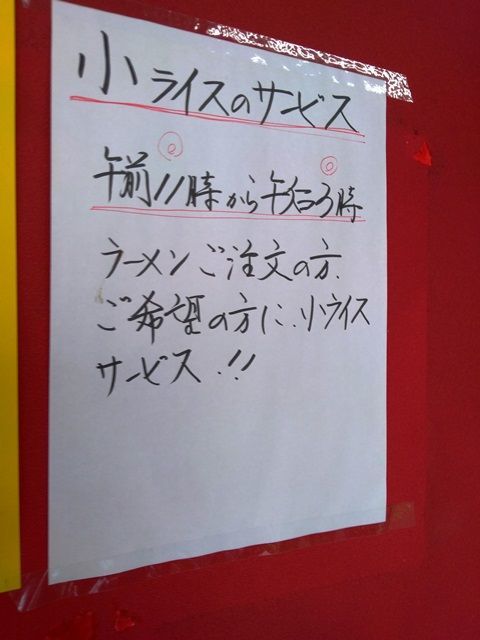 小ライスのサービス
午前11時から午后3時
ラーメンご注文の方、
ご希望の方に、小ライス
サービス.!!